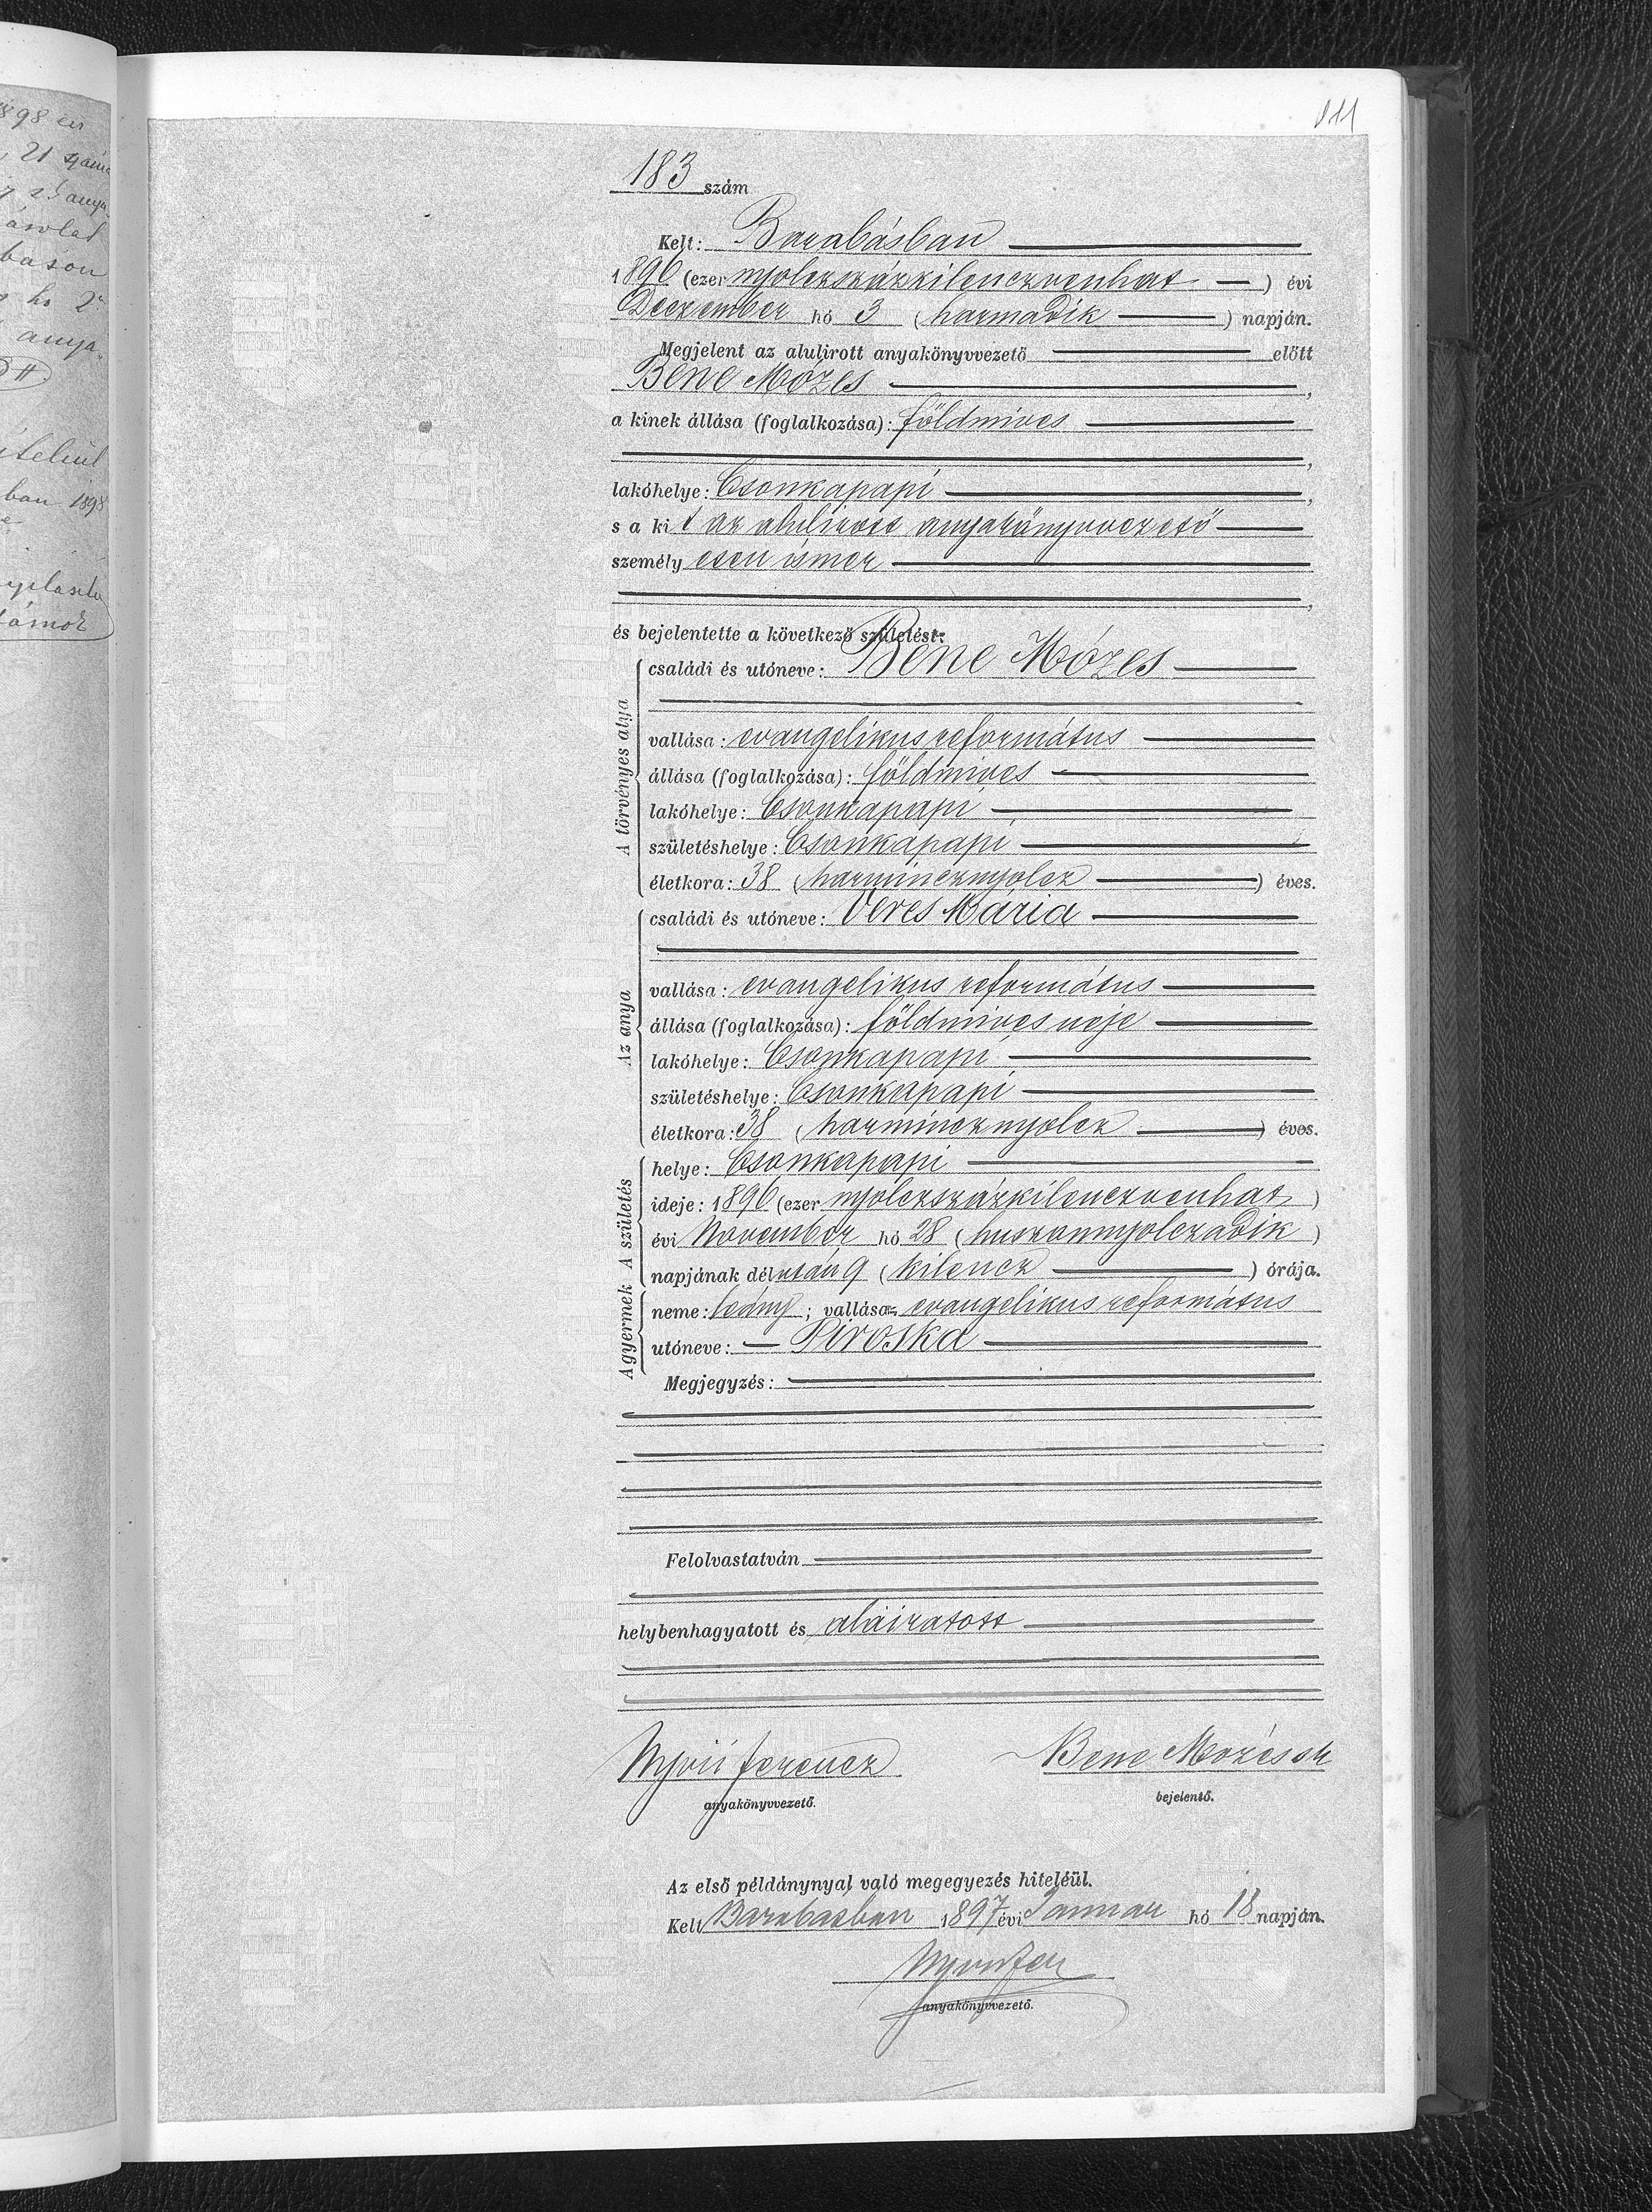 898 év
21 szám
anya
ásolat
bason
hó 2
anya
iteléül
ban 1898
111
183 szám
Kelt: Barabásban
1896 (ezer nyolczszázkilenczvenhat) évi
Deczember hó 3 (harmadik) napján.
Megjelent az alulirott anyakönyvvezető előtt
Bene Mózes,
a kinek állása (foglalkozása): földmives
,
lakóhelye: Csonkapapi,
s a kit az alulirott anyakönyvvezető
személyesen ismer
,
és bejelentette a következő születést:
A törvényes atya
családi és utóneve: Bene Mózes
vallása: evangelikus református
állása (foglalkozása): földmives
lakóhelye: Csonkapapi
születéshelye: Csonkapapi
életkora: 38 (harmincznyolcz) éves.
Az anya
családi és utóneve: Veres Mária
vallása: evangelikus református
állása (foglalkozása): földmives neje
lakóhelye: Csonkapapi
születéshelye: Csonkapapi
életkora: 38 (harmincznyolcz) éves.
A születés
helye: Csonkapapi
ideje: 1896 (ezer nyolczszázkilenczvenhat)
évi November hó 28 (huszonnyolczadik)
napjának délután 9 (kilencz) órája.
A gyermek
neme: leány; vallása: evangelikus református
utóneve: Piroska
Megjegyzés:
Felolvastatván
helybenhagyatott és aláiratott
Nyirii Ferencz Bene Mózes sk
anyakönyvvezető. bejelentő.
Az első példánynyal való megegyezés hiteléül.
Kelt Barabasban 1897 évi Januar hó 18 napján.
anyakönyvvezető.